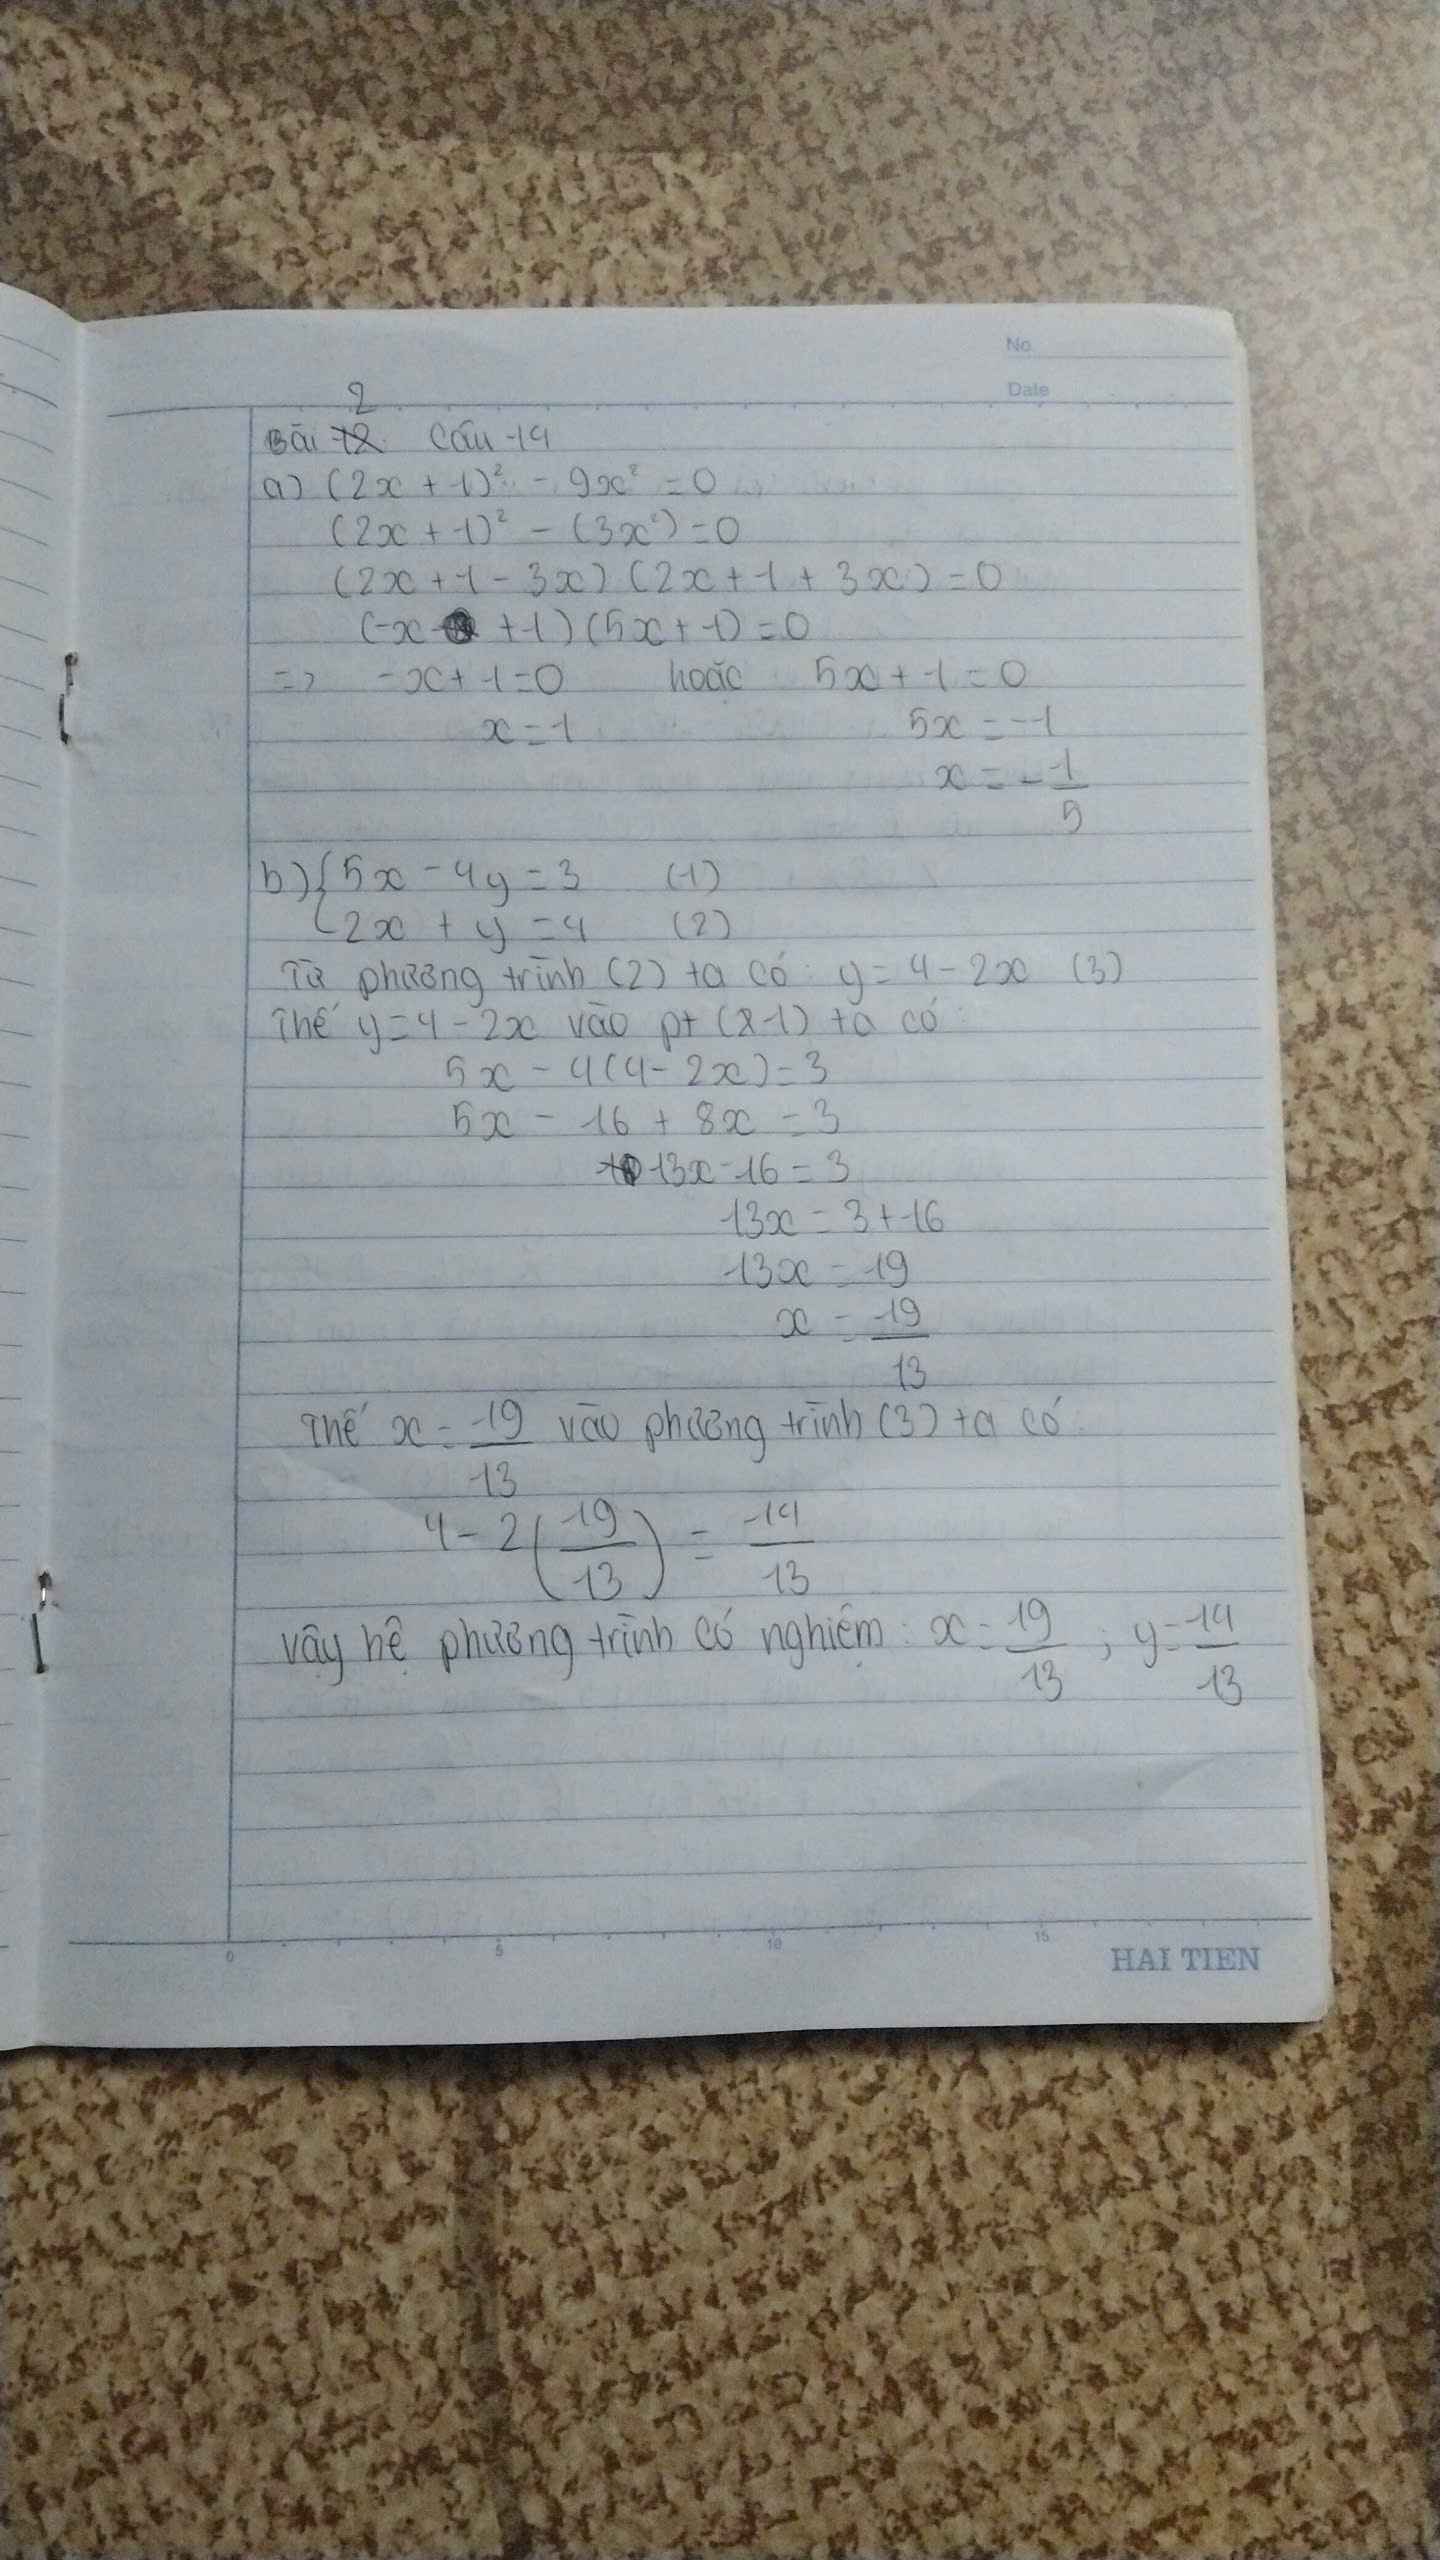 No.
Date
2
Bài 12 Câu 14
a) (2x + 1)² - 9x² = 0
(2x + 1)² - (3x²) = 0
(2x + 1 - 3x) (2x + 1 + 3x) = 0
(-x + 1) (5x + 1) = 0
=> -x + 1 = 0 hoặc 5x + 1 = 0
x = 1 5x = -1
x = - 1/5
b) { 5x - 4y = 3 (1)
2x + y = 4 (2)
Từ phương trình (2) ta có: y = 4 - 2x (3)
Thế y = 4 - 2x vào pt (1) ta có:
5x - 4(4 - 2x) = 3
5x - 16 + 8x = 3
13x - 16 = 3
13x = 3 + 16
13x = 19
x = 19/13
Thế x = 19/13 vào phương trình (3) ta có:
4 - 2(19/13) = 14/13
Vậy hệ phương trình có nghiệm: x = 19/13 ; y = 14/13
0 5 10 15
HAI TIEN